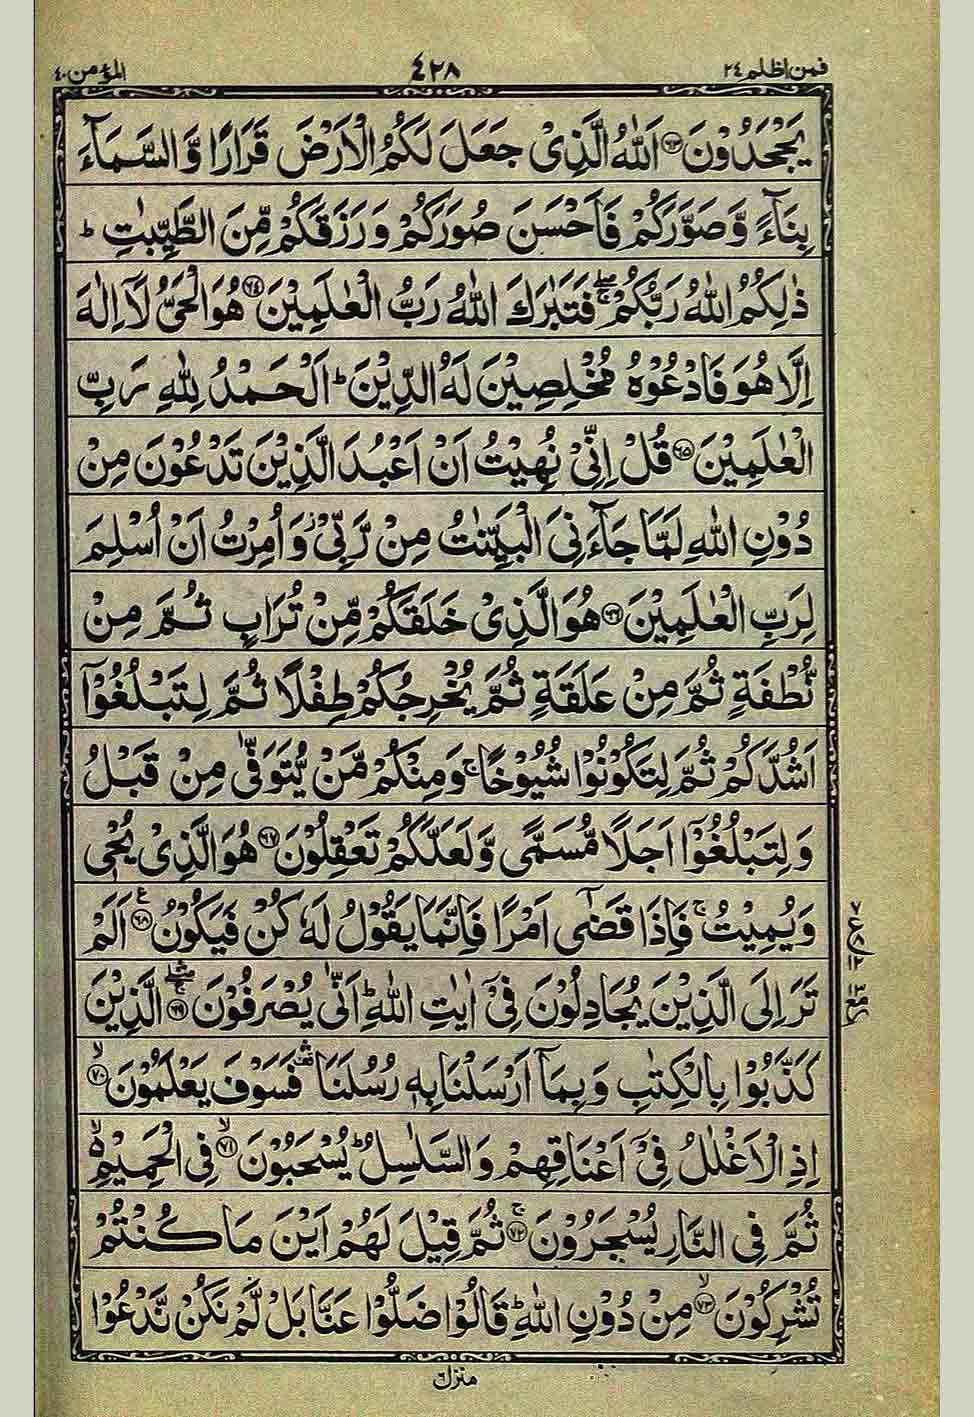 فمن اظلم ٢٤ ٤٢٨ المؤمن ٤٠
يَجْحَدُوْنَ ﴿٦٣﴾ اَللّٰهُ الَّذِىْ جَعَلَ لَكُمُ الْاَرْضَ قَرَارًا وَّالسَّمَآءَ
بِنَآءً وَّصَوَّرَكُمْ فَاَحْسَنَ صُوَرَكُمْ وَرَزَقَكُمْ مِّنَ الطَّيِّبٰتِ ؕ
ذٰلِكُمُ اللّٰهُ رَبُّكُمْ ۖۚ فَتَبٰرَكَ اللّٰهُ رَبُّ الْعٰلَمِيْنَ ﴿٦٤﴾ هُوَ الْحَىُّ لَاۤ اِلٰهَ
اِلَّا هُوَ فَادْعُوْهُ مُخْلِصِيْنَ لَهُ الدِّيْنَ ؕ اَلْحَمْدُ لِلّٰهِ رَبِّ
الْعٰلَمِيْنَ ﴿٦٥﴾ قُلْ اِنِّىْ نُهِيْتُ اَنْ اَعْبُدَ الَّذِيْنَ تَدْعُوْنَ مِنْ
دُوْنِ اللّٰهِ لَمَّا جَآءَنِىَ الْبَيِّنٰتُ مِنْ رَّبِّىْ ز وَاُمِرْتُ اَنْ اُسْلِمَ
لِرَبِّ الْعٰلَمِيْنَ ﴿٦٦﴾ هُوَ الَّذِىْ خَلَقَكُمْ مِّنْ تُرَابٍ ثُمَّ مِنْ
نُّطْفَةٍ ثُمَّ مِنْ عَلَقَةٍ ثُمَّ يُخْرِجُكُمْ طِفْلًا ثُمَّ لِتَبْلُغُوْۤا
اَشُدَّكُمْ ثُمَّ لِتَكُوْنُوْا شُيُوْخًا ۚ وَمِنْكُمْ مَّنْ يُّتَوَفّٰى مِنْ قَبْلُ
وَلِتَبْلُغُوْۤا اَجَلًا مُّسَمًّى وَّلَعَلَّكُمْ تَعْقِلُوْنَ ﴿٦٧﴾ هُوَ الَّذِىْ يُحْىٖ
وَيُمِيْتُ ۚ فَاِذَا قَضٰٓى اَمْرًا فَاِنَّمَا يَقُوْلُ لَهٗ كُنْ فَيَكُوْنُ ﴿٦٨﴾ ع اَلَمْ
تَرَ اِلَى الَّذِيْنَ يُجَادِلُوْنَ فِىْۤ اٰيٰتِ اللّٰهِ ؕ اَنّٰى يُصْرَفُوْنَ ﴿٦٩﴾ ۖۚ الَّذِيْنَ
كَذَّبُوْا بِالْكِتٰبِ وَبِمَاۤ اَرْسَلْنَا بِهٖ رُسُلَنَا ۛ فَسَوْفَ يَعْلَمُوْنَ ﴿٧٠﴾ ۙ
اِذِ الْاَغْلٰلُ فِىْۤ اَعْنَاقِهِمْ وَالسَّلٰسِلُ ؕ يُسْحَبُوْنَ ﴿٧١﴾ ۙ فِى الْحَمِيْمِ ۙ
ثُمَّ فِى النَّارِ يُسْجَرُوْنَ ﴿٧٢﴾ ۚ ثُمَّ قِيْلَ لَهُمْ اَيْنَ مَا كُنْتُمْ
تُشْرِكُوْنَ ﴿٧٣﴾ ۙ مِنْ دُوْنِ اللّٰهِ ؕ قَالُوْا ضَلُّوْا عَنَّا بَلْ لَّمْ نَكُنْ نَّدْعُوْا
منزل ٦